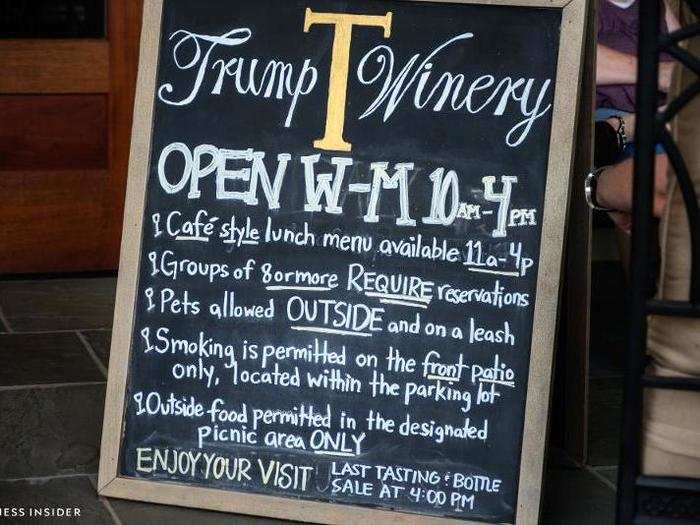 Trump T Winery
OPEN W-M 10AM-4PM
Café style lunch menu available 11a-4p
Groups of 8 or more REQUIRE reservations
Pets allowed OUTSIDE and on a leash
Smoking is permitted on the front patio
only, located within the parking lot
Outside food permitted in the designated
picnic area ONLY
ENJOY YOUR VISIT
LAST TASTING & BOTTLE
SALE AT 4:00 PM
NESS INSIDER